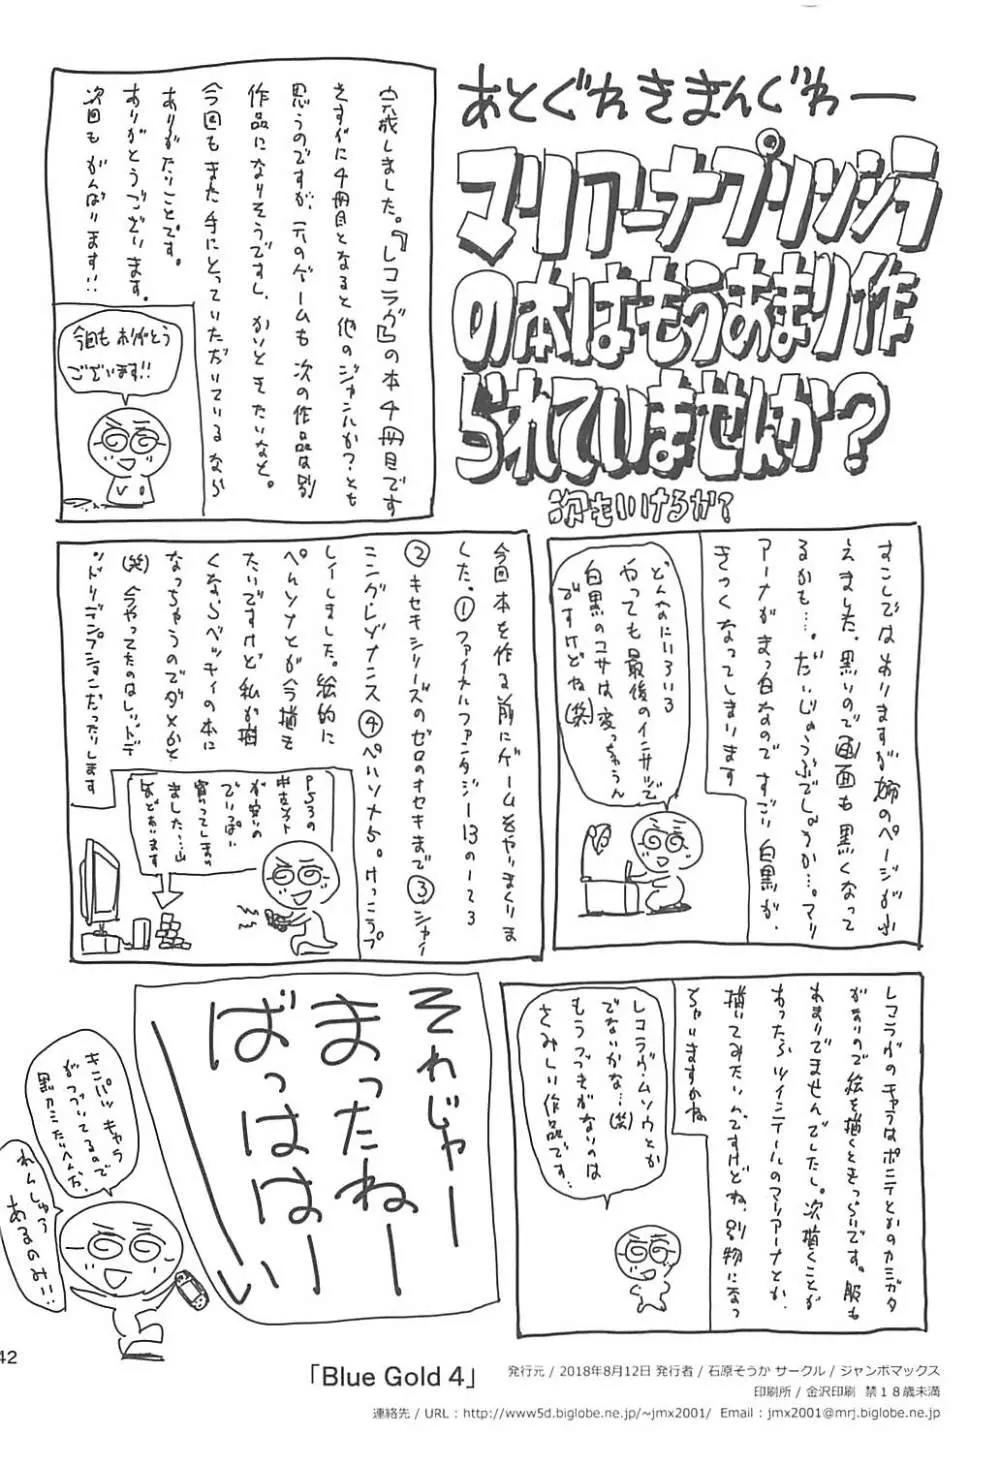 あとぐわきまんぐわー
マリアーナプリンシラ
の本はもうあまり作
られていませんか?
次もいけるか?
完成しました。「レコラヴ」の本4冊目です
さすがに4冊目となると他のジャンルか?とも
思うのですが、元のゲームも次の作品は別
作品になりそうですし、かいときたいなと。
今回もまた手にとっていただいているなら
ありがたいことです。
ありがとうございます。
次回もがんばります!!
今回もありがとう
ございます!!
すこしではありますが姉のページがふ
えました。黒いので画面も黒くなって
るかも…。だいじょうぶでしょうか…。マリ
アーナがまっ白なのですごい白黒が、
きつくなってしまいます
どんなにいろいろ
やっても最後のインサツで
白黒のコサは変っちゃうん
ですけどね(笑)
今回本を作る前にゲームをやりまくりま
した。①ファイナルファンタジー13の1~3
②キセキシリーズのゼロのキセキまで③シャイ
ニングレゾナンス④ペルソナ5。けっこうプ
レイしました。絵的に
ペルソナとかが今描き
たいですけど私が描
くならベッキィの本に
なっちゃうのでダメかと
(笑)今やってたのはレッドデ
ッドリデンプションだったりします
PS3の
中古ソフト
が安いの
でいっぱい
買ってしまい
ました…山
ほどあります
レコラヴのキャラはポニテとかのカミガタ
がないので絵を描くときつらいです。服も
あまりでませんでしたし。次描くことが
あったらツインテールのマリアーナとか、
描いてみたいんですけどね、別物になっ
ちゃいますかね
レコラヴ・ムソウとか
でないかな…(笑)
もうつづきがないのは
さみしい作品です…
それじゃー
まったねー
ばっはは〜い
キンパツキャラ
がつづいてるので
黒カミたいへんだ、
れんしゅう
あるのみ!!
42
「Blue Gold 4」
発行元 / 2018年8月12日 発行者 / 石原そうか サークル / ジャンボマックス
印刷所 / 金沢印刷 禁18歳未満
連絡先 / URL : http://www5d.biglobe.ne.jp/~jmx2001/ Email : jmx2001@mrj.biglobe.ne.jp